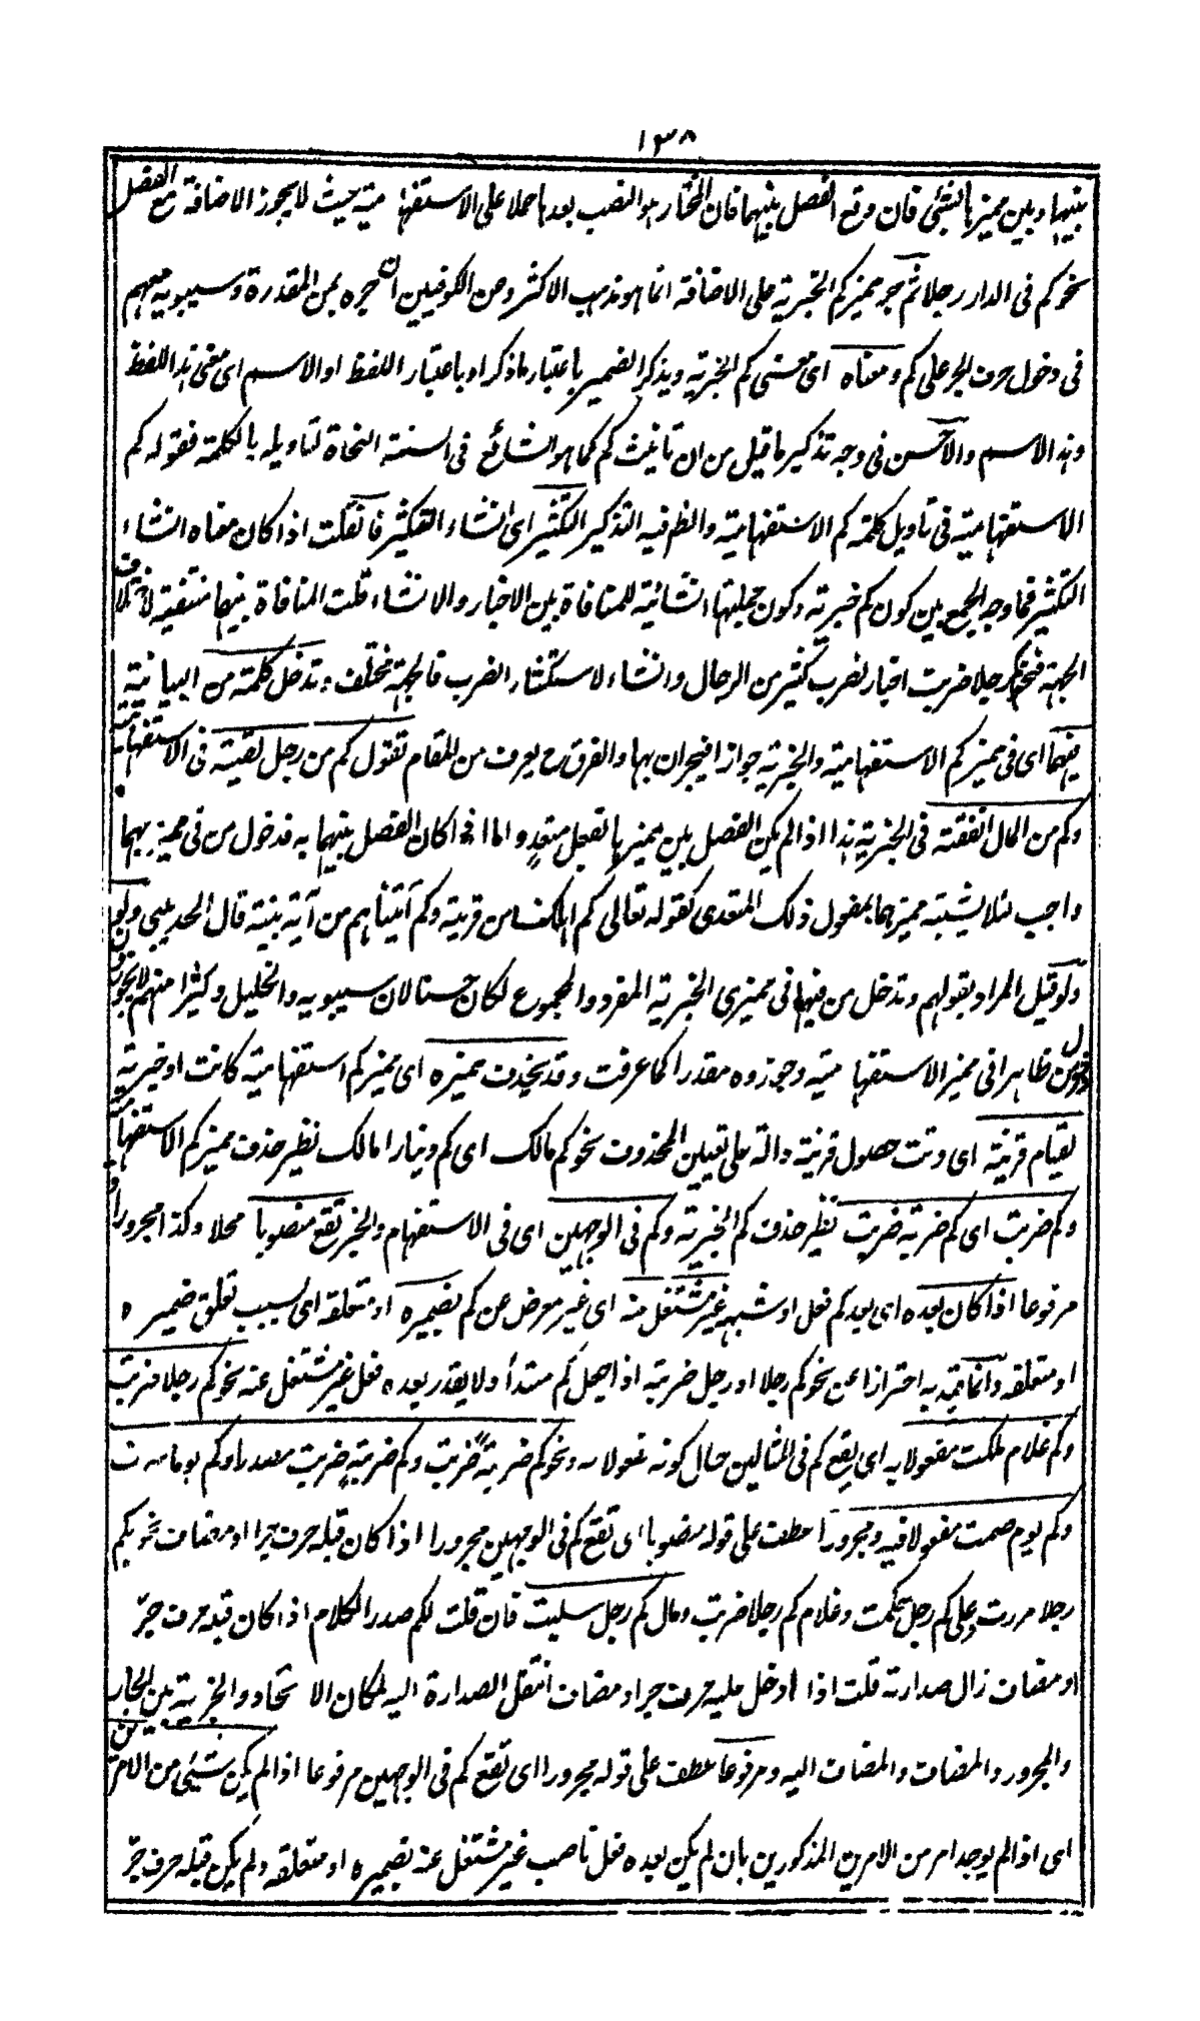 ١٣٨
بينهما وبين مميزها بشئ فان وقع الفصل بينهما فان المختار هو النصب بعدها حملا على الاستفهامية حيث لا يجوز الاضافة مع الفصل
نحو كم فى الدار رجلا ثم جر مميز كم الخبرية على الاضافة انما هو مذهب الاكثر ومن الكوفيين ان جره بمن المقدرة وسيبويه معهم
فى دخول حرف الجر على كم ومعناه اى معنى كم الخبرية ويذكر الضمير باعتبار ما ذكر او باعتبار اللفظ او الاسم اى معنى هذا اللفظ
وهذا الاسم والاحسن فى وجه تذكير ما قيل من ان تانيث كم كما هو الشائع فى السنة النحاة لتاويله بالكلمة فقوله كم
الاستفهامية فى تاويل كلمة كم الاستفهامية والظ فيه التذكير التكثير اى انشاء التكثير فان قلت اذا كان معناه انشاء
التكثير فما وجه الجمع بين كون كم خبرية وكون جملتها انشائية للمنافاة بين الاخبار والانشاء قلت المنافاة بينهما منتفية لاختلاف
الجهة فنحو كم رجلا ضربت اخبار لضرب كثير من الرجال وانشاء لاستكثار الضرب فالجهة مختلفة وتدخل كلمة من البيانية
فيهما اى فى مميز كم الاستفهامية والخبرية جوازا فيجران بها والفرق ح يعرف من المقام تقول كم من رجل لقيته فى الاستفهامية
وكم من المال انفقته فى الخبرية هذا اذا لم يكن الفصل بين مميزها بفعل متعد واما اذا كان الفصل بينهما به فدخول من فى مميز بهما
واجب لئلا يشتبه مميزهما بمفعول ذلك المتعدى كقوله تعالى كم اهلكنا من قرية وكم آتيناهم من آية بينة قال الحديثى ولو
ولو قيل المراد بقولهم وتدخل من فيهما فى مميزى الخبرية المفرد والمجموع لكان حسنا لان سيبويه والخليل وكثيرا منهم لا يجوزون
دخول من ظاهرا فى مميز الاستفهامية وجوزوه مقدرا كما عرفت وقد يحذف مميزه اى مميز كم استفهامية كانت او خبرية
لقيام قرينة اى وقت حصول قرينة دالة على تعيين المحذوف نحو كم مالك اى كم دينارا مالك نظير حذف مميز كم الاستفهامية
وكم ضربت اى كم ضربة ضربت نظير حذف كم الخبرية وكم فى الوجهين اى فى الاستفهام والخبر تقع منصوبا محلا وكذا مجرورا و
مرفوعا اذا كان بعده اى بعد كم فعل او شبهه غير مشتغل عنه اى غير معرض عن كم بضميره او متعلقه اى بسبب تعلق ضميره
او متعلقه وانما قيد به احترازا عن نحو كم رجلا او رجل ضربته اذا جعل كم مبتدأ ولا يقدر بعده فعل غير مشتغل عنه نحو كم رجلا ضربت
وكم غلام ملكت مفعولا به اى يقع كم فى المثالين حال كونه مفعولا به ونحو كم ضربة ضربت وكم ضربة ضربت مصدرا وكم يوما سرت
وكم يوم صمت مفعولا فيه ومجرورا عطف على قوله منصوبا اى تقع كم فى الوجهين مجرورا اذا كان قبله حرف جر او مضاف نحو بكم
رجلا مررت وعلى كم رجل حكمت وغلام كم رجلا ضربت ومال كم رجل سلبت فان قلت لكم صدر الكلام اذا كان قبله حرف جر
او مضاف زال صدارته قلت اذا ادخل عليه حرف جر او مضاف انتقل الصدارة اليه لمكان الاتحاد والجزئية بين الجار
والمجرور والمضاف والمضاف اليه ومرفوعا عطف على قوله مجرورا اى تقع كم فى الوجهين مرفوعا اذا لم يكن شئ من الامرين
اى اذا لم يوجد امر من الامرين المذكورين بان لم يكن بعده فعل ناصب غير مشتغل عنه بضميره او متعلقه ولم يكن قبله حرف جر